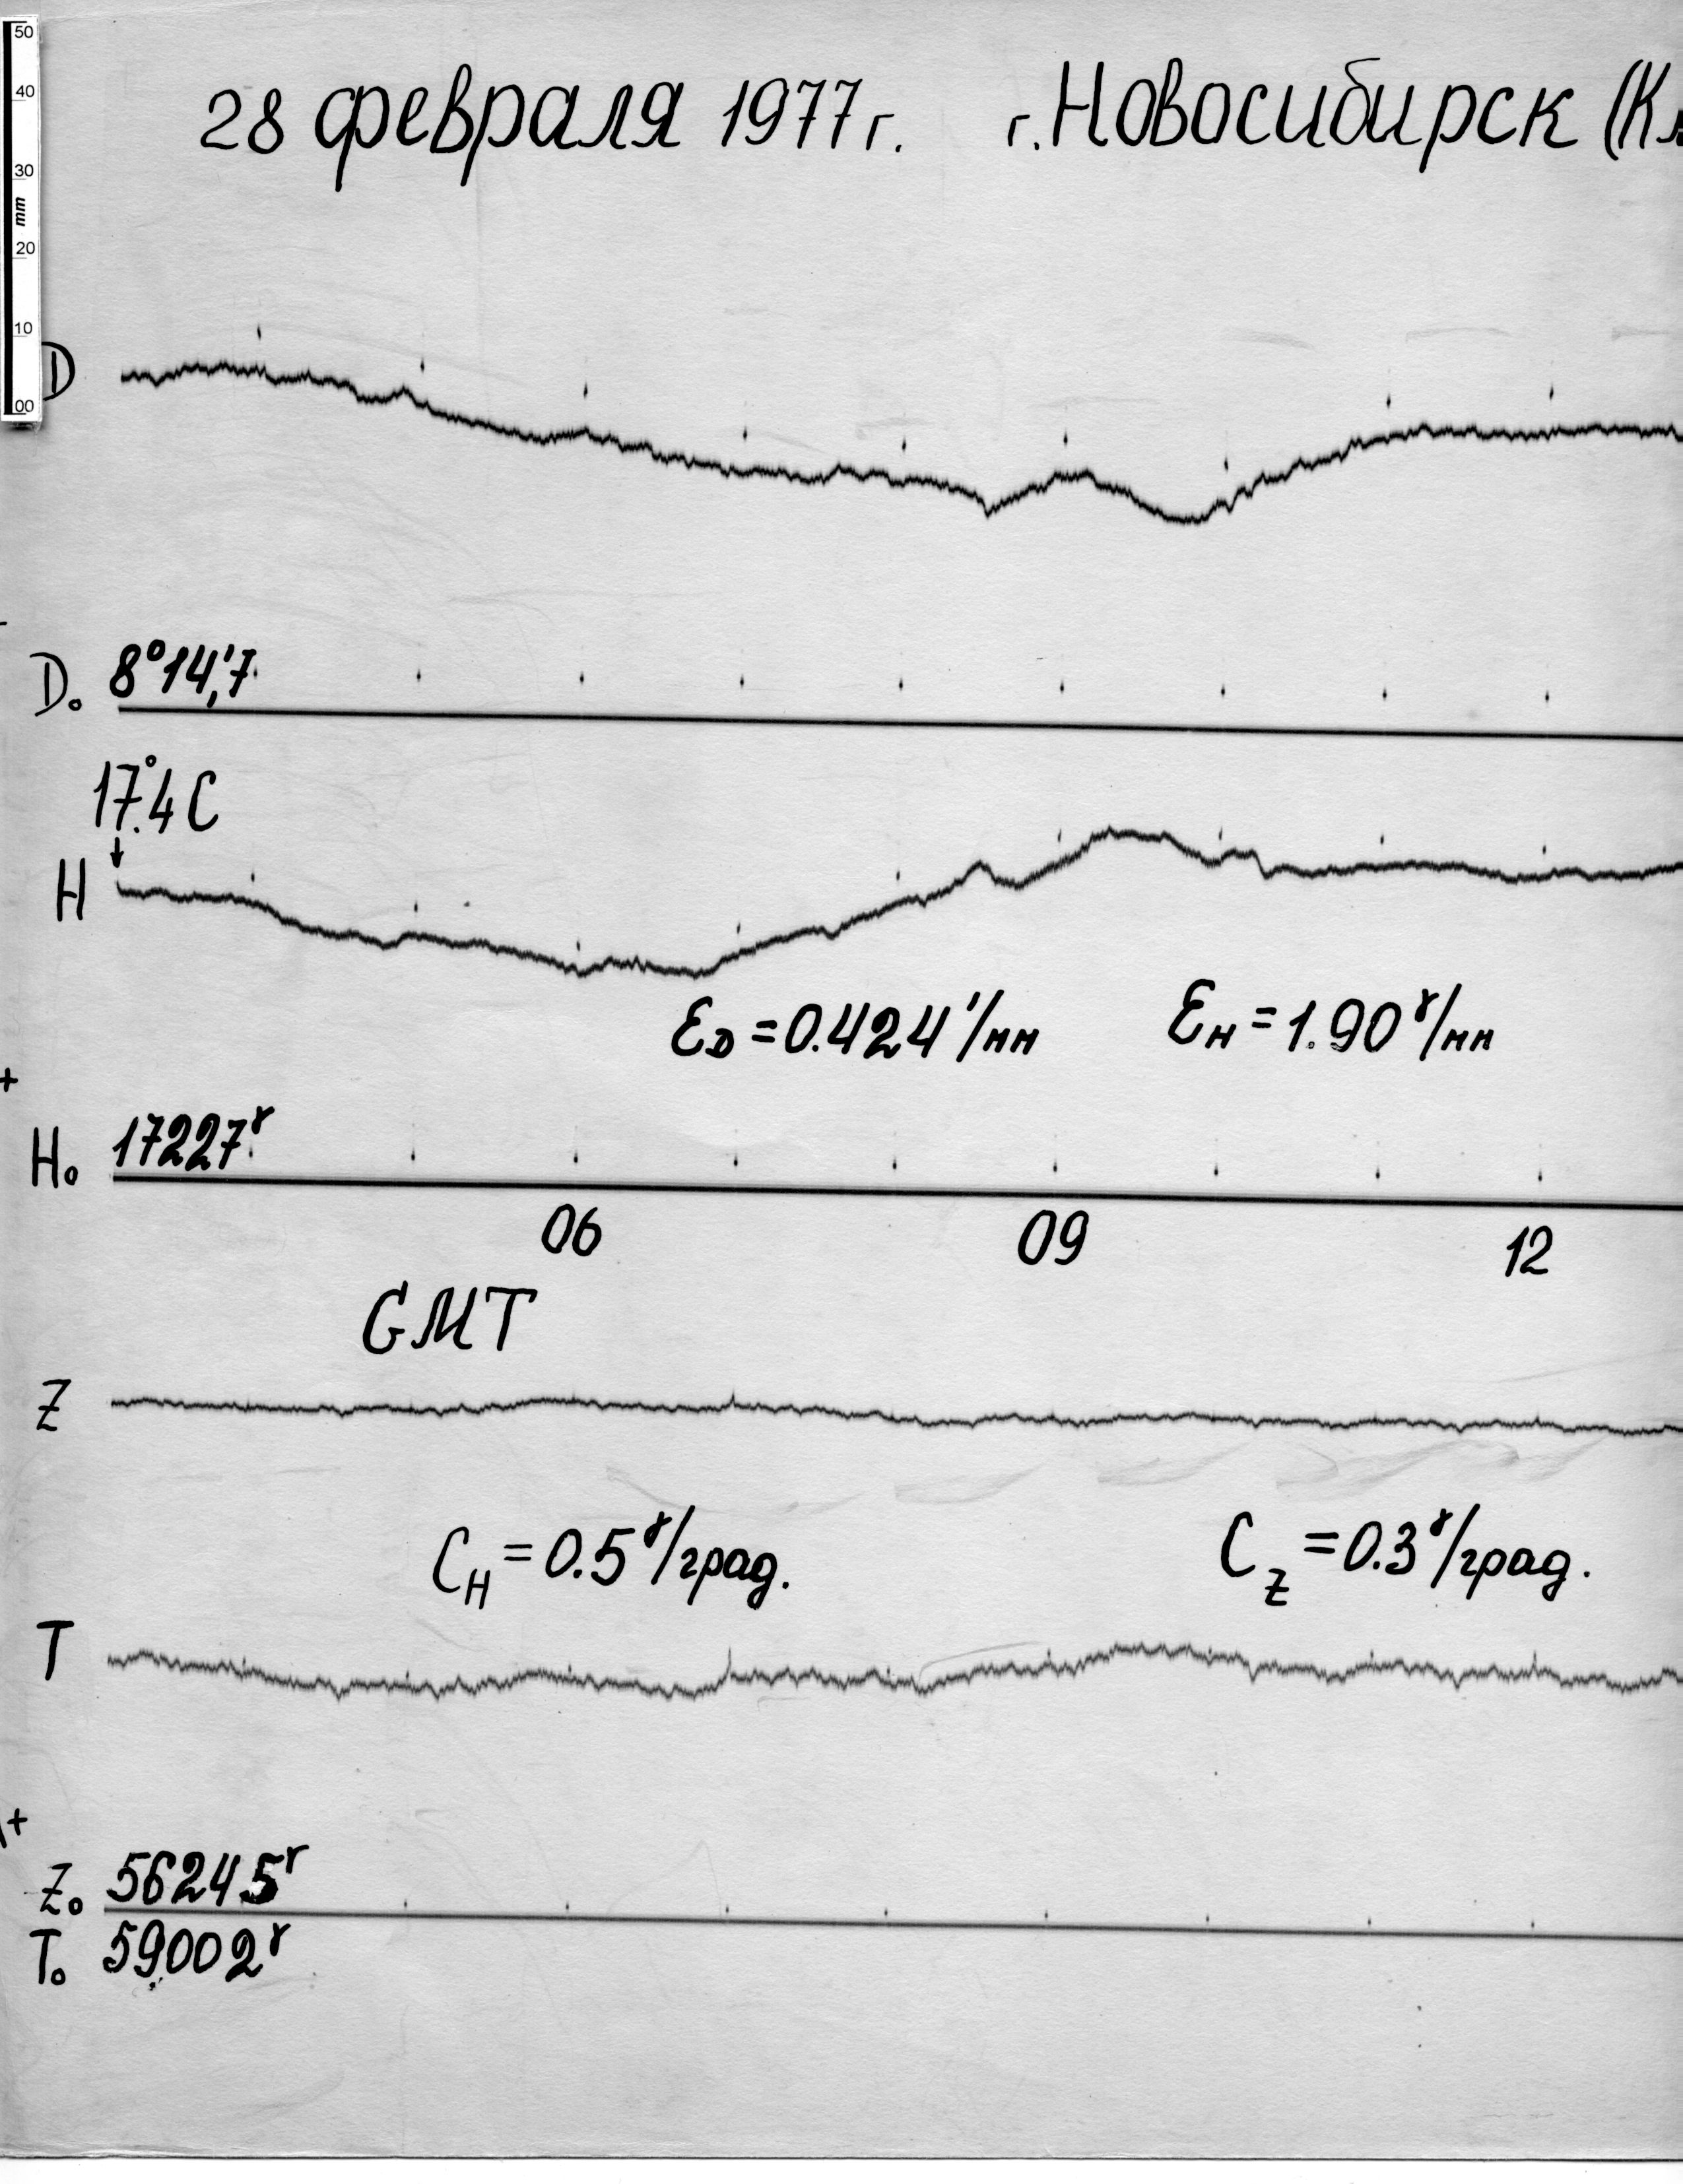 50
40
30
mm
20
10
00
28 февраля 1977 г. г. Новосибирск (Кл
D
D₀ 8°14,'7
17°.4 C
H
ε_D = 0.424'/мм ε_H = 1.90γ/мм
+
H₀ 17227γ
06 09 12
GMT
Z
C_H = 0.5γ/град. C_Z = 0.3γ/град.
T
+
Z₀ 56245γ
T₀ 59002γ